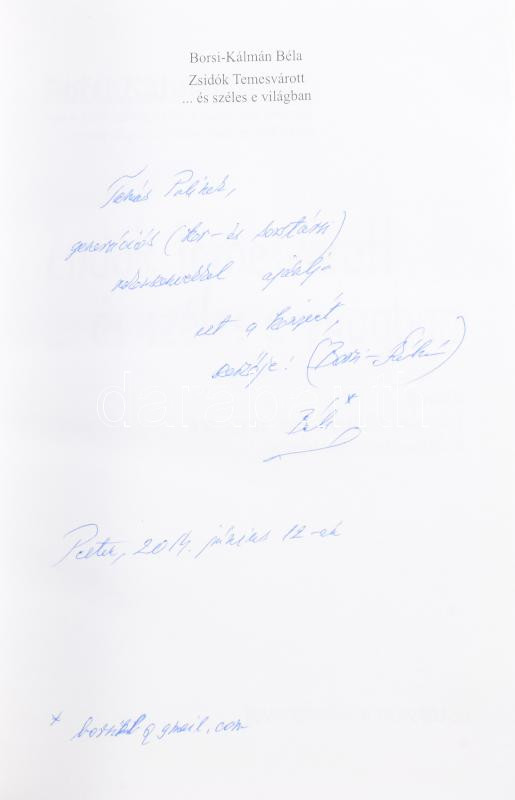 Borsi-Kálmán Béla
Zsidók Temesvárott
... és széles e világban
Tamás Pálnak,
generációs (kor- és sorstársi)
rokonszenvvel ajánlja
ezt a könyvét,
szerzője: (Borsi-Kálmán)
Béla *
darabanth
2014. június 12-én
* @gmail.com